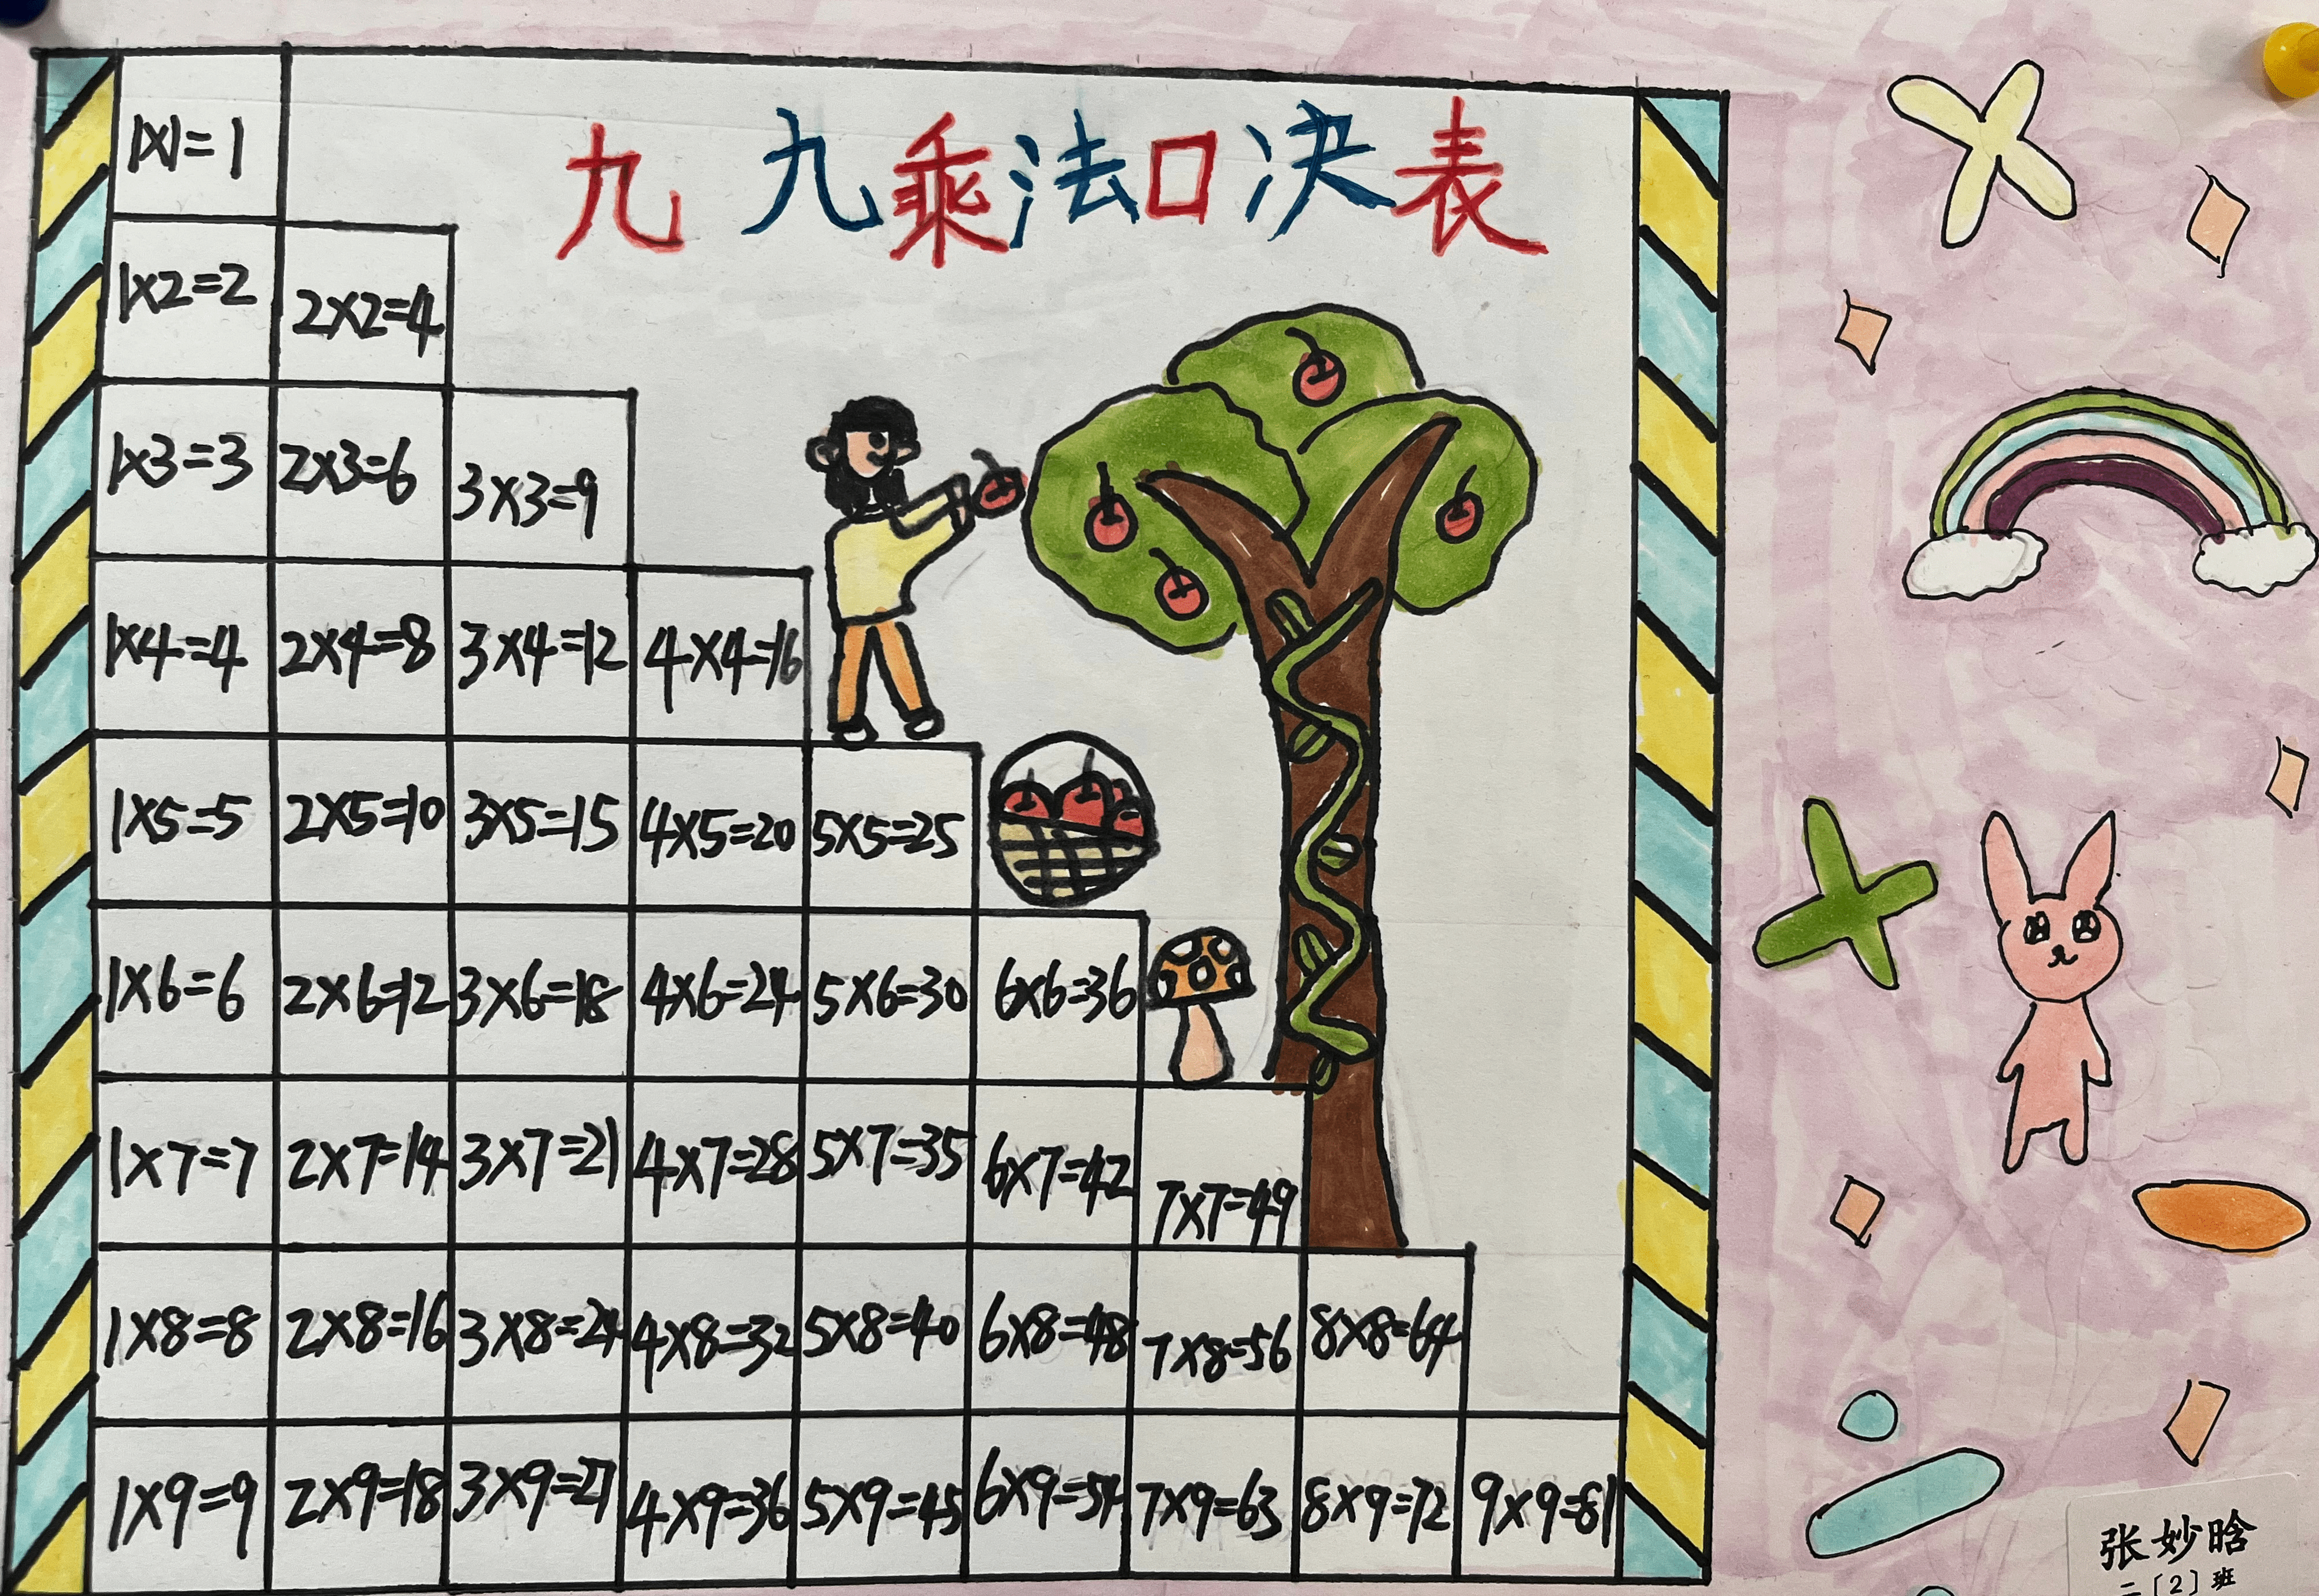 九九乘法口决表
1×1=1
1×2=2 2×2=4
1×3=3 2×3=6 3×3=9
1×4=4 2×4=8 3×4=12 4×4=16
1×5=5 2×5=10 3×5=15 4×5=20 5×5=25
1×6=6 2×6=12 3×6=18 4×6=24 5×6=30 6×6=36
1×7=7 2×7=14 3×7=21 4×7=28 5×7=35 6×7=42 7×7=49
1×8=8 2×8=16 3×8=24 4×8=32 5×8=40 6×8=48 7×8=56 8×8=64
1×9=9 2×9=18 3×9=27 4×9=36 5×9=45 6×9=54 7×9=63 8×9=72 9×9=81
张妙晗
二〔2〕班